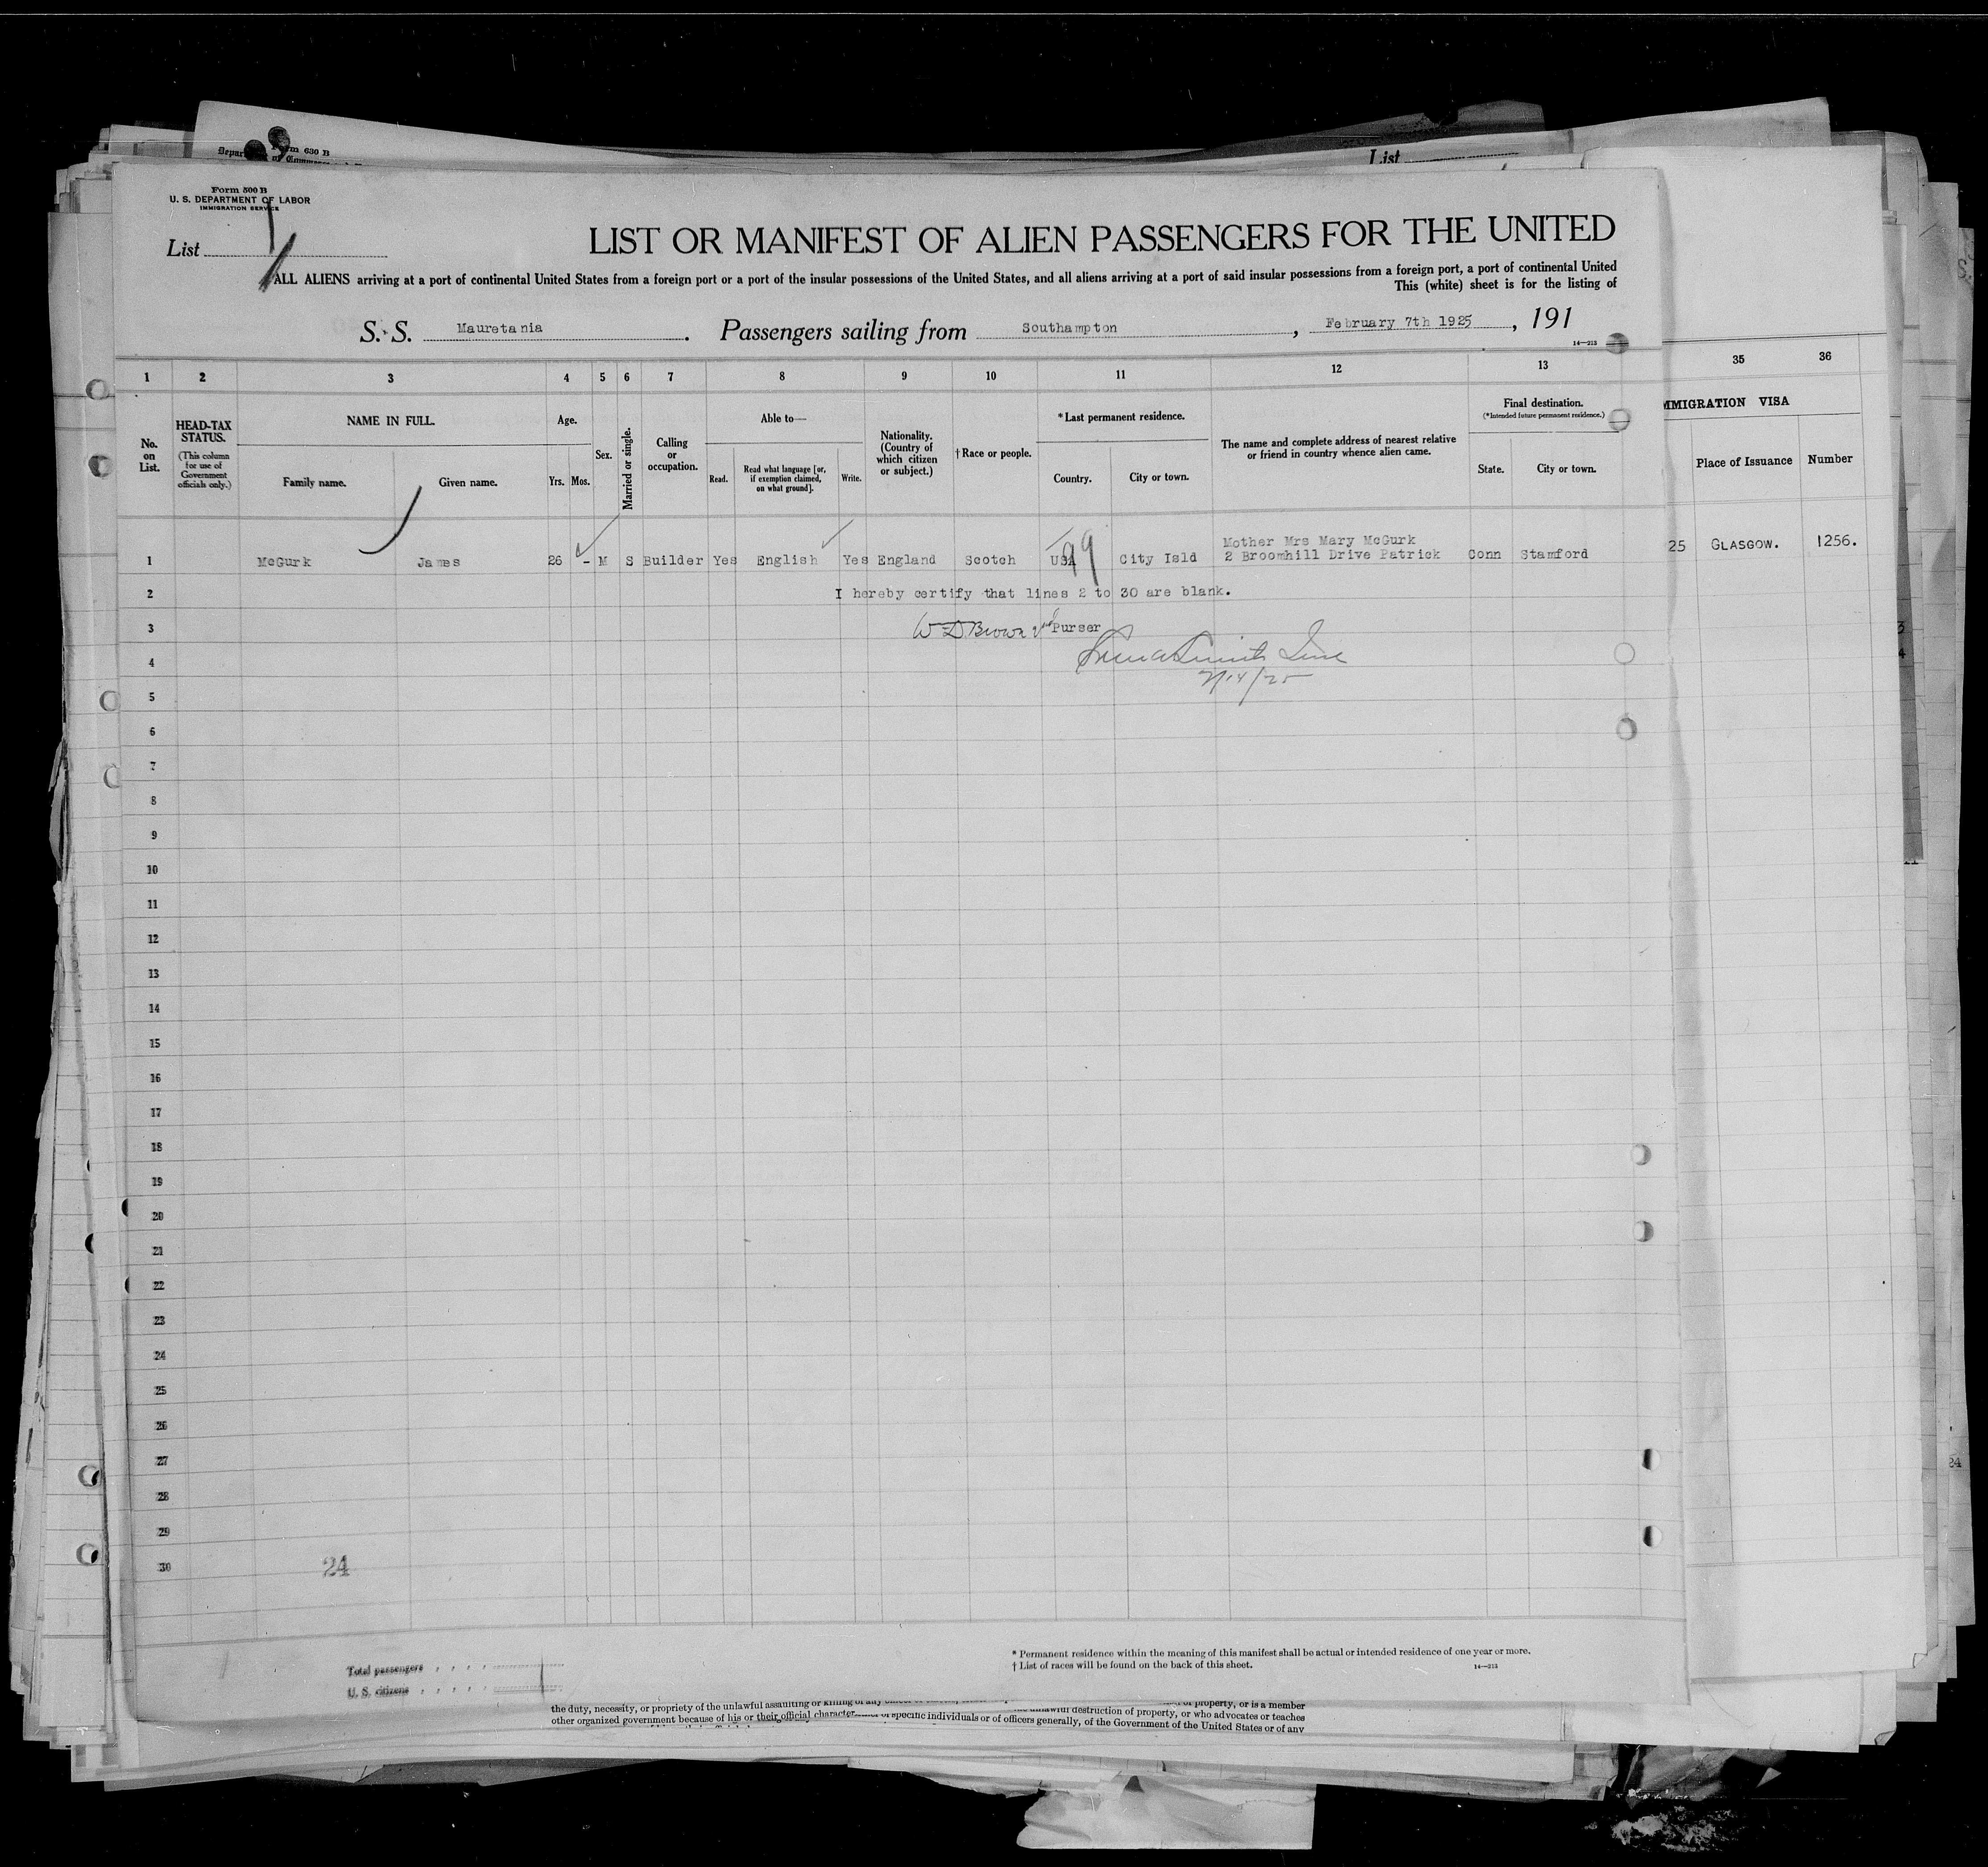 Form 630 B
List
Form 500 B
U. S. DEPARTMENT OF LABOR
IMMIGRATION SERVICE
List
LIST OR MANIFEST OF ALIEN PASSENGERS FOR THE UNITED
ALL ALIENS arriving at a port of continental United States from a foreign port or a port of the insular possessions of the United States, and all aliens arriving at a port of said insular possessions from a foreign port, a port of continental United
This (white) sheet is for the listing of
S. S. Mauretania. Passengers sailing from Southampton, February 7th 1925, 191
14—213
1 2 3 4 5 6 7 8 9 10 11 12 13 35 36
No. on List.
HEAD-TAX STATUS.
(This column for use of Government officials only.)
NAME IN FULL.
Family name. Given name.
Age.
Yrs. Mos.
Sex.
Married or single.
Calling or occupation.
Able to—
Read. Read what language [or, if exemption claimed, on what ground]. Write.
Nationality. (Country of which citizen or subject.)
†Race or people.
*Last permanent residence.
Country. City or town.
The name and complete address of nearest relative or friend in country whence alien came.
Final destination.
(*Intended future permanent residence.)
State. City or town.
MMIGRATION VISA
Place of Issuance Number
Mother Mrs Mary McGurk
1 McGurk James 26 - M S Builder Yes English Yes England Scotch USA City Isld 2 Broomhill Drive Patrick Conn Stamford 25 GLASGOW. 1256.
99
2 I hereby certify that lines 2 to 30 are blank.
3 W D Brown 2nd Purser
4
2/14/25
5
6
7
8
9
10
11
12
13
14
15
16
17
18
19
20
21
22
23
24
25
26
27
28
29
30 24
Total passengers
U. S. citizens
* Permanent residence within the meaning of this manifest shall be actual or intended residence of one year or more.
† List of races will be found on the back of this sheet.
14—213
the duty, necessity, or propriety of the unlawful assaulting or killing of any property, or is a member
other organized government because of his or their official character specific individuals or of officers generally, of the Government of the United States or of any
destruction of property, or who advocates or teaches